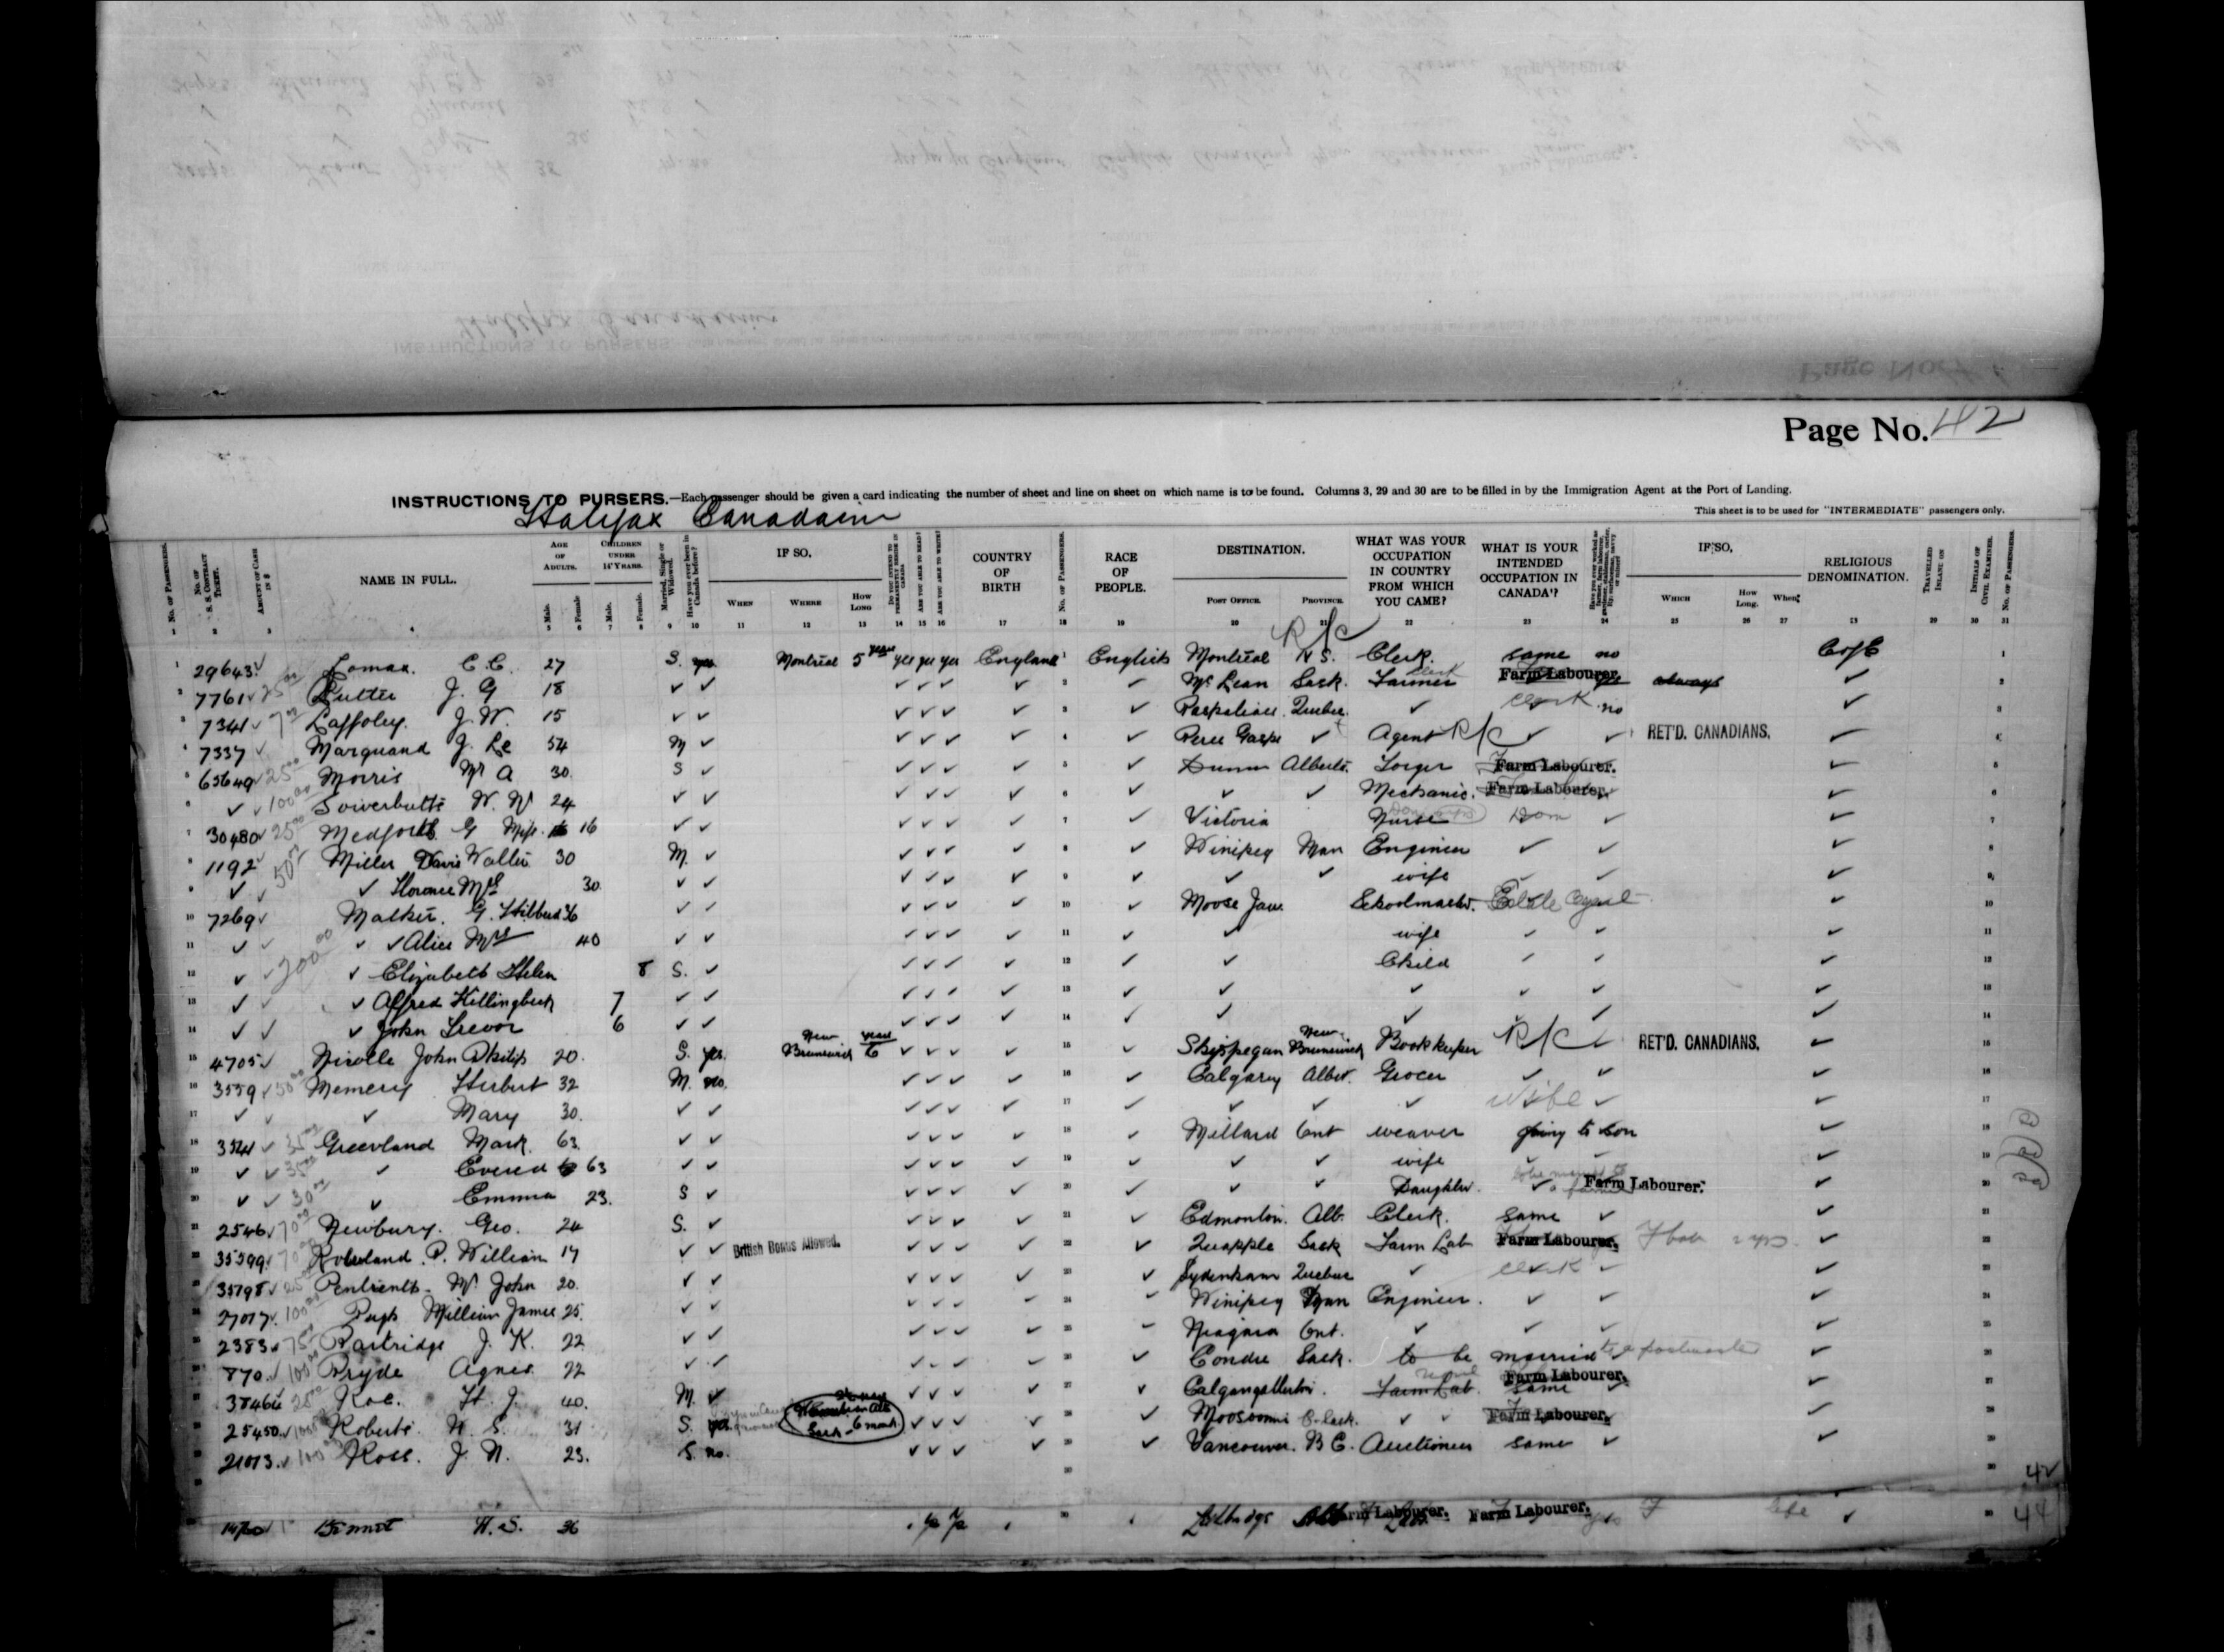 Page No. 42
INSTRUCTIONS TO PURSERS.—Each passenger should be given a card indicating the number of sheet and line on sheet on which name is to be found. Columns 3, 29 and 30 are to be filled in by the Immigration Agent at the Port of Landing.
Halifax Canadain
This sheet is to be used for "INTERMEDIATE" passengers only.
No. OF PASSENGERS. No. OF S. S. CONTRACT TICKET. AMOUNT OF CASH IN $ NAME IN FULL. AGE OF ADULTS. CHILDREN UNDER 14 YEARS. Married, Single or Widowed. Have you ever been in Canada before? IF SO. DO YOU INTEND TO PERMANENTLY RESIDE IN CANADA ARE YOU ABLE TO READ? ARE YOU ABLE TO WRITE? COUNTRY OF BIRTH No. OF PASSENGERS. RACE OF PEOPLE. DESTINATION. WHAT WAS YOUR OCCUPATION IN COUNTRY FROM WHICH YOU CAME? WHAT IS YOUR INTENDED OCCUPATION IN CANADA? IF SO, RELIGIOUS DENOMINATION. TRAVELLED INLAND ON INITIALS OF CIVIL EXAMINER. No. OF PASSENGERS.
Male. Female Male. Female. WHEN WHERE How LONG POST OFFICE. PROVINCE. WHICH How Long. When
1 2 3 4 5 6 7 8 9 10 11 12 13 14 15 16 17 18 19 20 21 22 23 24 25 26 27 29 30 31
1 29643 ✓ Lomax. C.C. 27 S. yes Montreal 5 years yes yes yes England 1 English Montreal N S. Clerk. same no C of E 1
2 7761 ✓ 25 00 Rutter J. G 18 ✓ ✓ ✓ ✓ ✓ ✓ 2 ✓ McLean Sask. Farmer Clerk Farm Labourer. yes always ✓ 2
3 7341 ✓ 7 00 Laffoley. J. W. 15 ✓ ✓ ✓ ✓ ✓ ✓ 3 ✓ Quebec ✓ Clerk no ✓ 3
4 7337 ✓ Marquand J. Le 54 M ✓ ✓ ✓ ✓ ✓ 4 ✓ Perce Gaspe ✓ Agent R/C ✓ ✓ RET'D. CANADIANS. ✓ 4
5 65649 ✓ 25 00 Morris Mr A 30. S ✓ ✓ ✓ ✓ ✓ 5 ✓ Alberta. Farm Labourer. ✓ 5
6 ✓ ✓ 100 00 Sowerbutts W. 24 ✓ ✓ ✓ ✓ ✓ ✓ 6 ✓ ✓ ✓ Mechanic. Farm Labourer. ✓ 6
7 30480 ✓ 25 00 Medforth G Miss. 16 ✓ ✓ ✓ ✓ ✓ ✓ 7 ✓ Victoria Nurse Dom ✓ ✓ 7
8 1192 ✓ 50 00 Miller Davis Walter 30 M. ✓ ✓ ✓ ✓ ✓ 8 ✓ Winipeg Man Engineer ✓ ✓ ✓ 8
9 ✓ ✓ ✓ Florence Mrs 30. ✓ ✓ ✓ ✓ ✓ ✓ 9 ✓ ✓ ✓ wife ✓ ✓ ✓ 9
10 7269 ✓ G. 36 ✓ ✓ ✓ ✓ ✓ ✓ 10 ✓ Moose Jaw. Schoolmaster. Estate Agent ✓ 10
11 ✓ ✓ ✓ ✓ Alice Mrs 40 ✓ ✓ ✓ ✓ ✓ ✓ 11 ✓ ✓ wife ✓ ✓ ✓ 11
12 ✓ ✓ 200 00 ✓ Elizabeth Helen 8 S. ✓ ✓ ✓ ✓ ✓ 12 ✓ ✓ Child ✓ ✓ ✓ 12
13 ✓ ✓ ✓ Alfred Killingbeck 7 ✓ ✓ ✓ ✓ ✓ ✓ 13 ✓ ✓ ✓ ✓ ✓ ✓ 13
14 ✓ ✓ ✓ John Trevor 6 ✓ ✓ ✓ ✓ ✓ ✓ 14 ✓ ✓ ✓ ✓ ✓ ✓ 14
15 4705 ✓ Nicolle John Philip 20. S. yes. New Brunswick years 6 ✓ ✓ ✓ ✓ 15 ✓ Shippegan New Brunswick Bookkeeper R/C ✓ RET'D. CANADIANS. ✓
16 3559 ✓ 50 00 Memery Herbert 32 M. no. ✓ ✓ ✓ ✓ 16 ✓ Calgary Albert. Grocer ✓ ✓ ✓ 16
17 ✓ ✓ ✓ Mary 30. ✓ ✓ ✓ ✓ ✓ ✓ 17 ✓ ✓ ✓ ✓ wife ✓ ✓ 17
18 3541 ✓ 35 00 Greenland Mark. 63 ✓ ✓ ✓ ✓ ✓ ✓ 18 ✓ Millard Ont weaver going to son ✓ 18
19 ✓ ✓ 35 00 ✓ 63 ✓ ✓ ✓ ✓ ✓ ✓ 19 ✓ ✓ ✓ wife ✓ ✓ ✓ 19
20 ✓ ✓ 30 00 ✓ Emma 23. S ✓ ✓ ✓ ✓ ✓ 20 ✓ ✓ ✓ Daughter. to be married to a farmer Farm Labourer. ✓ 20
21 2546 ✓ 70 00 Newbury. Geo. 24 S. ✓ ✓ ✓ ✓ ✓ 21 ✓ Edmonton. Alb. Clerk. same ✓ ✓ 21
22 35599 ✓ 70 00 P. William 17 ✓ ✓ British Bonus Allowed. ✓ ✓ ✓ ✓ 22 ✓ Quapple Sask Farm Lab Farm Labourer. ✓ 22
23 35798 ✓ 25 00 John 20. ✓ ✓ ✓ ✓ ✓ ✓ 23 ✓ Sydenham Quebec ✓ Clerk ✓ ✓ 23
24 27017 ✓ 100 00 Pugh William James 25. ✓ ✓ ✓ ✓ ✓ ✓ 24 ✓ Winipeg Man Engineer. ✓ ✓ ✓ 24
25 2383 ✓ 75 00 Partridge J. K. 22 ✓ ✓ ✓ ✓ ✓ ✓ 25 ✓ Niagara Ont. ✓ ✓ ✓ ✓ 25
26 870 ✓ 100 00 Pryde Agnes 22 ✓ ✓ ✓ ✓ ✓ ✓ 26 ✓ Condie Sask. to be married to a postmaster ✓ 26
27 38466 25 00 Roe. H. J. 40. M. ✓ ✓ ✓ ✓ ✓ 27 ✓ Farm Lab. Farm Labourer. same ✓ ✓ 27
28 25450 ✓ 100 00 Roberts. W. S. 31 S. yes. Sask - 6 month. ✓ ✓ ✓ ✓ 28 ✓ Moosomin Sask. ✓ ✓ Farm Labourer. ✓ 28
29 21073 ✓ 100 00 Ross. J. N. 23. S. no. ✓ ✓ ✓ ✓ 29 ✓ Vancouver. B C. Auctioneer same ✓ ✓ 29
30 30
42
H. S. 36 30 Lethbridge Alb Farm Labourer. Farm Labourer. yes life ✓ 30 44